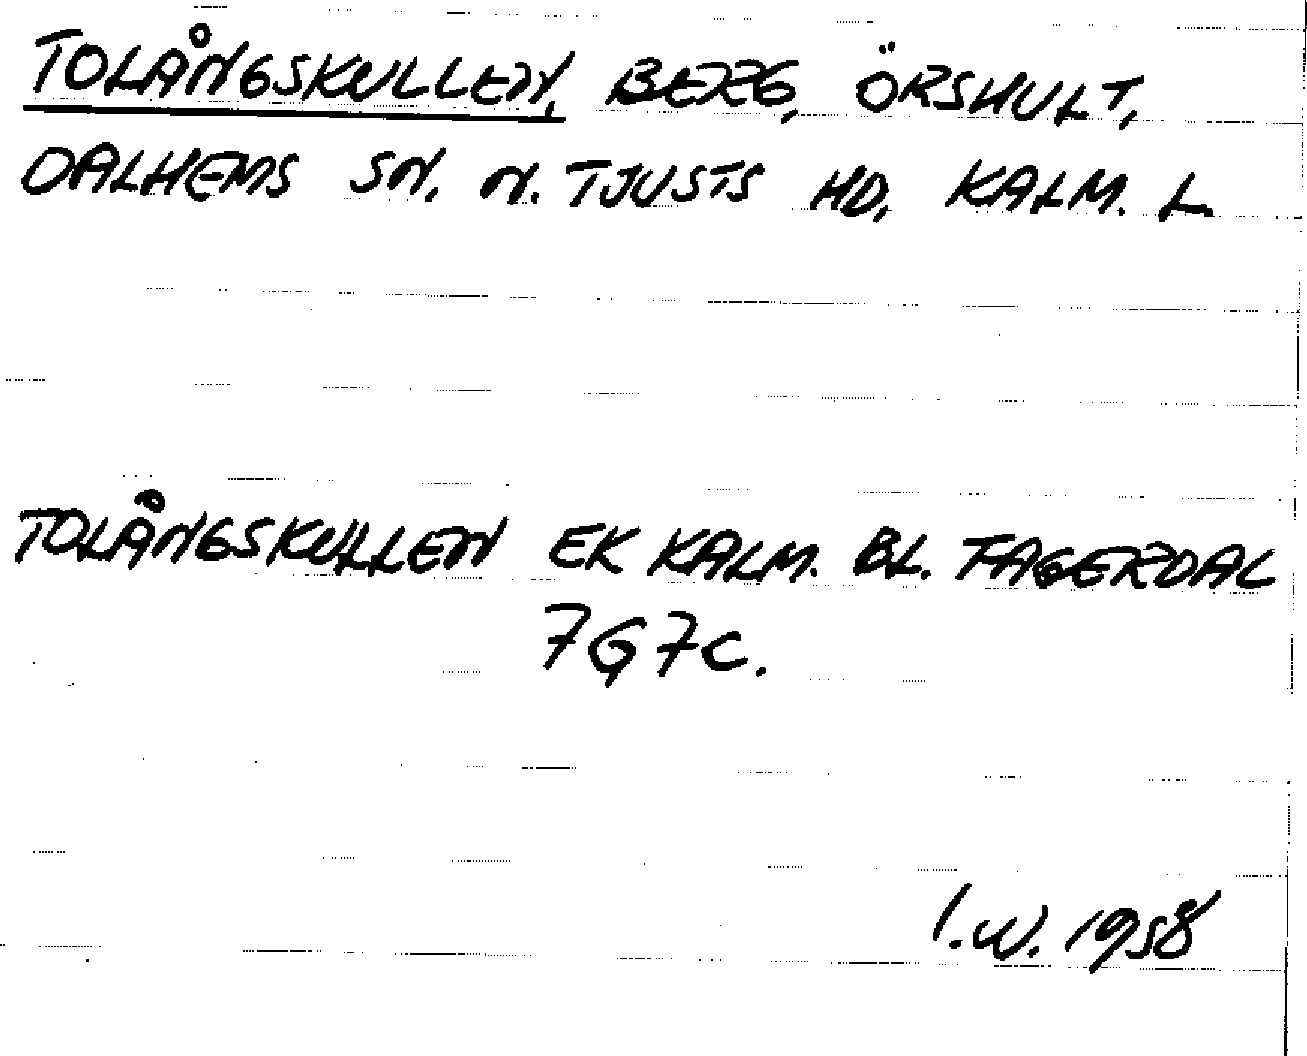 TOLÅNGSKULLEN, BERG, ÖRSHULT,
DALHEMS SN. N. TJUSTS HD, KALM. L.
TOLÅNGSKULLEN EK KALM. BL. FAGERDAL
7G7C.
I.W. 1958